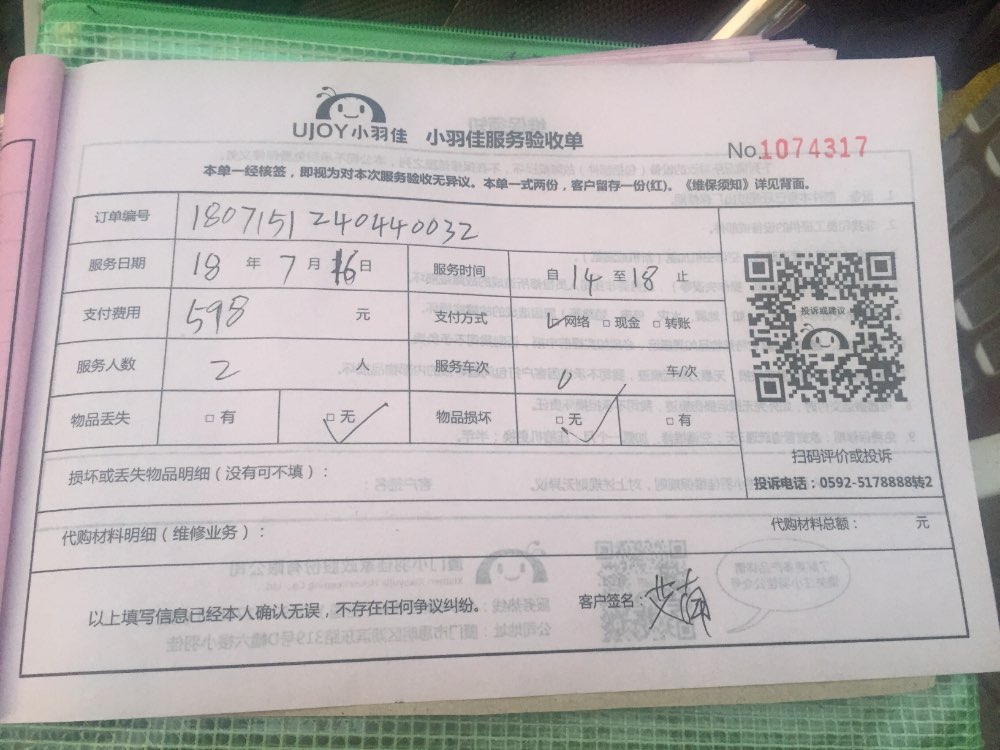 UJOY小羽佳 小羽佳服务验收单
No.1074317
本单一经核签，即视为对本次服务验收无异议。本单一式两份，客户留存一份(红)。《维保须知》详见背面。
订单编号 1807151240440032
服务日期 18 年 7 月 16 日 服务时间 自 14 至 18 止
支付费用 598 元 支付方式 网络 □ 现金 □ 转账
服务人数 2 人 服务车次 0 车/次
物品丢失 □ 有 □ 无 物品损坏 □ 无 □ 有
投诉或建议
扫码评价或投诉
投诉电话：0592-5178888转2
损坏或丢失物品明细（没有可不填）：
代购材料明细（维修业务）： 代购材料总额： 元
以上填写信息已经本人确认无误，不存在任何争议纠纷。 客户签名：